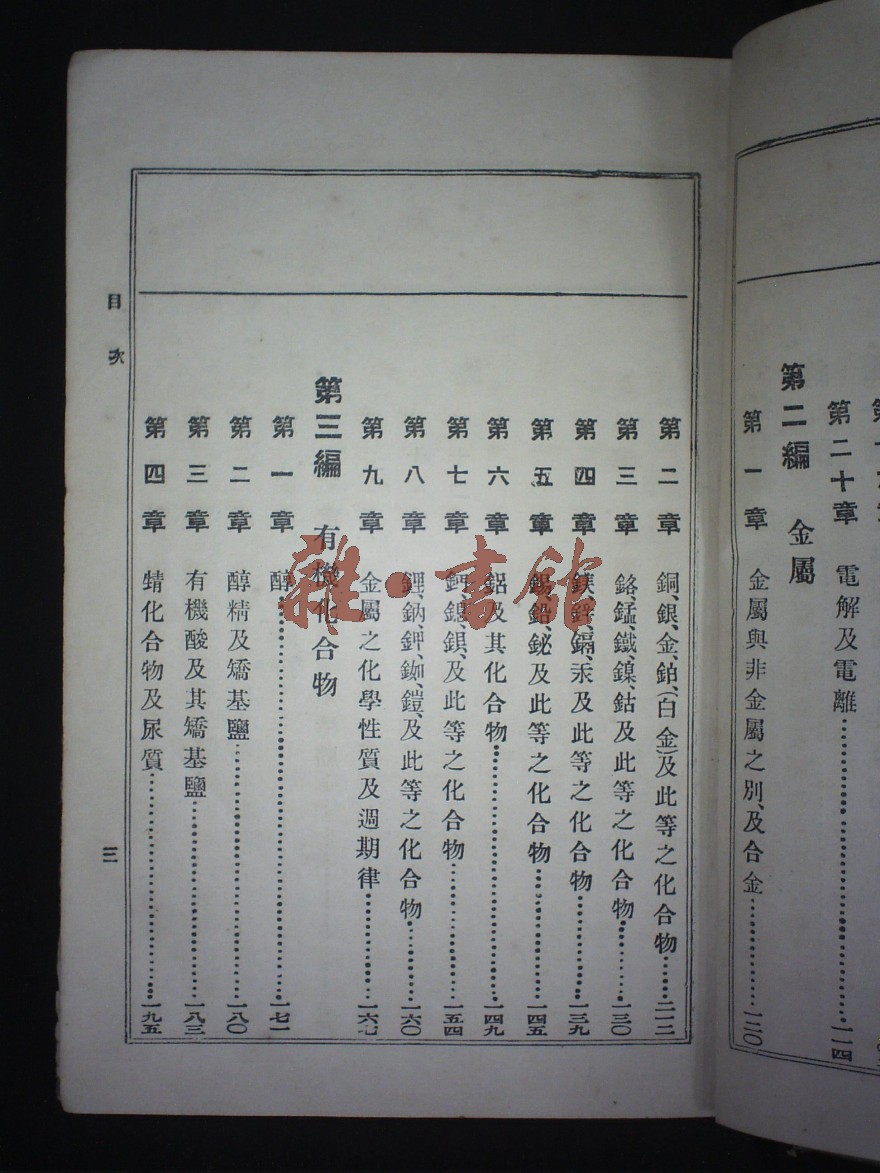 第二十章 電解及電離 一一四
第二編 金屬
第一章 金屬與非金屬之別、及合金 一二〇
第二章 銅、銀、金、鉑、(白金)及此等之化合物
第三章 鉻、錳、鐵、鎳、鈷及此等之化合物 一三〇
第四章 鎂、鋅、鎘、汞及此等之化合物 一三九
第五章 錫、鉛、鉍及此等之化合物 一四五
第六章 鋁及其化合物 一四九
第七章 鈣、鎴、鋇、及此等之化合物 一五四
第八章 鋰、鈉、鉀、銣、鏭、及此等之化合物 一六〇
第九章 金屬之化學性質及週期律 一六七
第三編 有機化合物
第一章 醇 一七一
第二章 醇精及矯基鹽 一八〇
第三章 有機酸及其矯基鹽 一八三
第四章 䝼化合物及尿質 一九五
目次
三
雜·書館